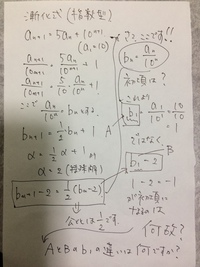 漸化式(指数型)
a_{n+1} = 5a_n + 10^{n+1}
(a_1 = 10)
\frac{a_{n+1}}{10^{n+1}} = \frac{5a_n}{10^{n+1}} + 1
\frac{a_{n+1}}{10^{n+1}} = \frac{5}{10} \cdot \frac{a_n}{10^n} + 1
ここで \frac{a_n}{10^n} = b_n
b_{n+1} = \frac{1}{2} b_n + 1
α = \frac{1}{2} α + 1 より
α = 2
b_{n+1} - 2 = \frac{1}{2} (b_n - 2)
公比は \frac{1}{2} です。
??ここです!!
b_n = \frac{a_n}{10^n}
初項は?
A
b_1 = \frac{a_1}{10^1} = \frac{10}{10}
= 1
ではなく
b_1 - 2
B
1 - 2 = -1
が初項に
なるのは
何故?
AとBのb_1の違いは何ですか?